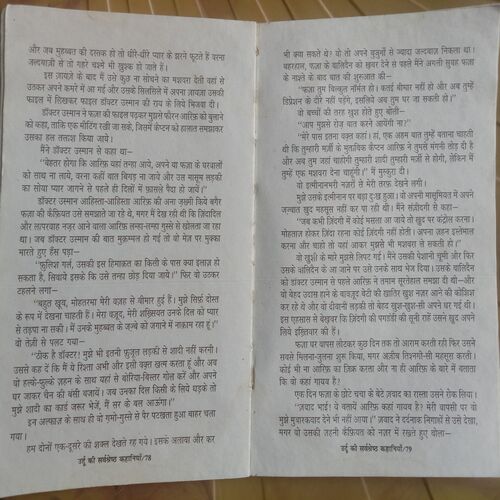 और जब मुहब्बत की दस्तक हो तो धीरे-धीरे प्यार के झरने फूटते हैं वरना
जल्दबाज़ी से तो गहरे चश्मे भी खुश्क हो जाते हैं।
इस जायज़े के बाद मैं उसे कुछ ना सोचने का मशवरा देती वहां से
उठकर अपने कमरे में आ गई और उसके सिलसिले में अपना जायज़ा उसकी
फाइल में लिखकर फाइल डॉक्टर उस्मान की राय के लिये भिजवा दी।
डॉक्टर उस्मान ने फ़ज़ा की फाइल पढ़कर मुझसे फौरन आरिफ़ को बुलाने
को कहा, ताकि एक मीटिंग रखी जा सके, जिसमें कैप्टन को हालात समझाकर
उसका हल तलाश किया जाये।
मैंने डॉक्टर उस्मान से कहा—
"बेहतर होगा कि आरिफ़ यहां तन्हा आये, अपने या फ़ज़ा के परवालों
को साथ ना लाये, वरना कहीं बात बिगड़ ना जाये और उस मासूम लड़की
का सोया प्यार जागने से पहले ही दिलों में फ़ासले पैदा हो जायें।"
डॉक्टर उस्मान आहिस्ता-आहिस्ता आरिफ़ की अना ज़ख्मी किये बगैर
फ़ज़ा की कैफ़ियत उसे समझाते जा रहे थे, मगर मैं देख रही थी कि ज़िंदादिल
और लापरवाह नज़र आने वाला आरिफ़ लम्हा-लम्हा गुस्से से खौलता जा रहा
था। जब डॉक्टर उस्मान की बात मुकम्मल हो गई तो वो मेज़ पर मुक्का
मारते हुए हँस पड़ा—
"फुलिश गर्ल, उसकी इस हिमाकत का किसी के पास क्या इलाज हो
सकता है, सिवाये इसके कि उसे तन्हा छोड़ दिया जाये।" फिर वो उठकर
टहलने लगा—
"बहुत खूब, मोहतरमा मेरी वजह से बीमार हुई हैं। मुझे सिर्फ़ दोस्त
के रूप में देखना चाहती हैं। मेरा वजूद, मेरी शख़्सियत उनके दिल को प्यार
से तड़पा ना सकी। मैं उनके मुहब्बत के जज़्बे को जगाने में नाकाम रहा हूं।"
वो तेज़ी से पलट गया—
"ठीक है डॉक्टर! मुझे भी इतनी फ़ुज़ूल लड़की से शादी नहीं करनी।
उससे कह दें कि मैं ये रिश्ता अभी और इसी वक्त ख़त्म करता हूं और अब
वो हल्के-फुल्के ज़हन के साथ यहां से बोरिया-बिस्तर गोल करें और अपने
घर जाकर चैन की बंसी बजायें। जब उनका दिल किसी के लिये धड़के तो
मुझे शादी का कार्ड ज़रूर भेजें, मैं सर के बल आऊंगा।"
इन अल्फ़ाज़ के साथ ही वो गमो-गुस्से से पैर पटखता हुआ बाहर चला
गया।
हम दोनों एक-दूसरे की शक्ल देखते रह गये। इसके अलावा और कर
उर्दू की सर्वश्रेष्ठ कहानियाँ/78
भी क्या सकते थे? वो तो अपने बुज़ुर्गों से ज्यादा जल्दबाज़ निकला था।
बहरहाल, फ़ज़ा के वालिदैन को ख़बर देने से पहले मैंने अगली सुबह फ़ज़ा
के नाश्ते के बाद बात की शुरूआत की—
"फ़ज़ा तुम बिल्कुल नॉर्मल हो। कतई बीमार नहीं हो और अब तुम्हें
डिप्रेशन के दौरे नहीं पड़ेंगे, इसलिये अब तुम घर जा सकती हो।"
वो बच्चों की तरह खुश होते हुए बोली—
"आप मुझसे रोज़ बात करने आयेंगी ना?"
"मेरे पास इतना वक्त कहां। हां, एक अहम बात तुम्हें बताना चाहती
थी कि तुम्हारी मर्ज़ी के मुताबिक कैप्टन आरिफ़ ने तुमसे मंगनी तोड़ दी है
और अब तुम जहां चाहोगी तुम्हारी शादी तुम्हारी मर्ज़ी से होगी, लेकिन मैं
तुम्हें एक मशवरा देना चाहूंगी।" मैं मुस्कुरा दी।
वो इत्मीनानभरी नज़रों से मेरी तरफ़ देखने लगी।
मुझे उसके इत्मीनान पर बड़ा दु:ख हुआ। वो अपनी मासूमियत में अपने
जज़्बात खुद महसूस नहीं कर पा रही थी। मैंने संजीदगी से कहा—
"जब कभी ज़िंदगी में कोई मसला आ जाये तो खुद पर कंट्रोल करना।
मोहताज होकर ज़िंदा रहना कोई ज़िंदगी नहीं होती। अपना ज़हन इस्तेमाल
करना और चाहो तो यहां आकर मुझसे भी मशवरा ले सकती हो।"
वो खुशी के मारे मुझसे लिपट गई। मैंने उसकी पेशानी चूमी और फिर
उसके वालिदैन के आ जाने पर उसे उनके साथ भेज दिया। उसके वालिदैन
को डॉक्टर उस्मान से पहले आरिफ़ ने तमाम सूरतेहाल समझा दी थी—और
वो बेहद उदास होने के बावजूद बेटी की खातिर खुश नज़र आने की कोशिश
कर रहे थे और वो दीवानी लड़की तो बेहद खुश-खुशी अपने घर गई थी।
इस एहसास से बेखबर कि ज़िंदगी की पगडंडी की सूनी राहें उसने खुद अपने
लिये इख़्तियार की हैं।
फ़ज़ा घर वापस लोटकर कुछ दिन तक तो आराम करती रही फिर उसने
सबसे मिलना-जुलना शुरू किया, मगर अजीब तिश्नगी-सी महसूस करती।
कोई भी ना आरिफ़ का ज़िक्र करता और ना ही आरिफ़ के बारे में बताता
कि वो कहां गायब है?
एक दिन फ़ज़ा के छोटे चचा के बेटे ज़वाद का रास्ता उसने रोक लिया।
"ज़वाद भाई! ये बतायें आरिफ़ कहां गायब है? मेरी वापसी पर वो
मुझे मुबारकवाद देने भी नहीं आया।" ज़वाद ने दर्दनाक निगाहों से उसे देखा,
मगर वो उसकी ज़हनी कैफ़ियत को नज़र में रखते हुए बोला—
उर्दू की सर्वश्रेष्ठ कहानियाँ/79